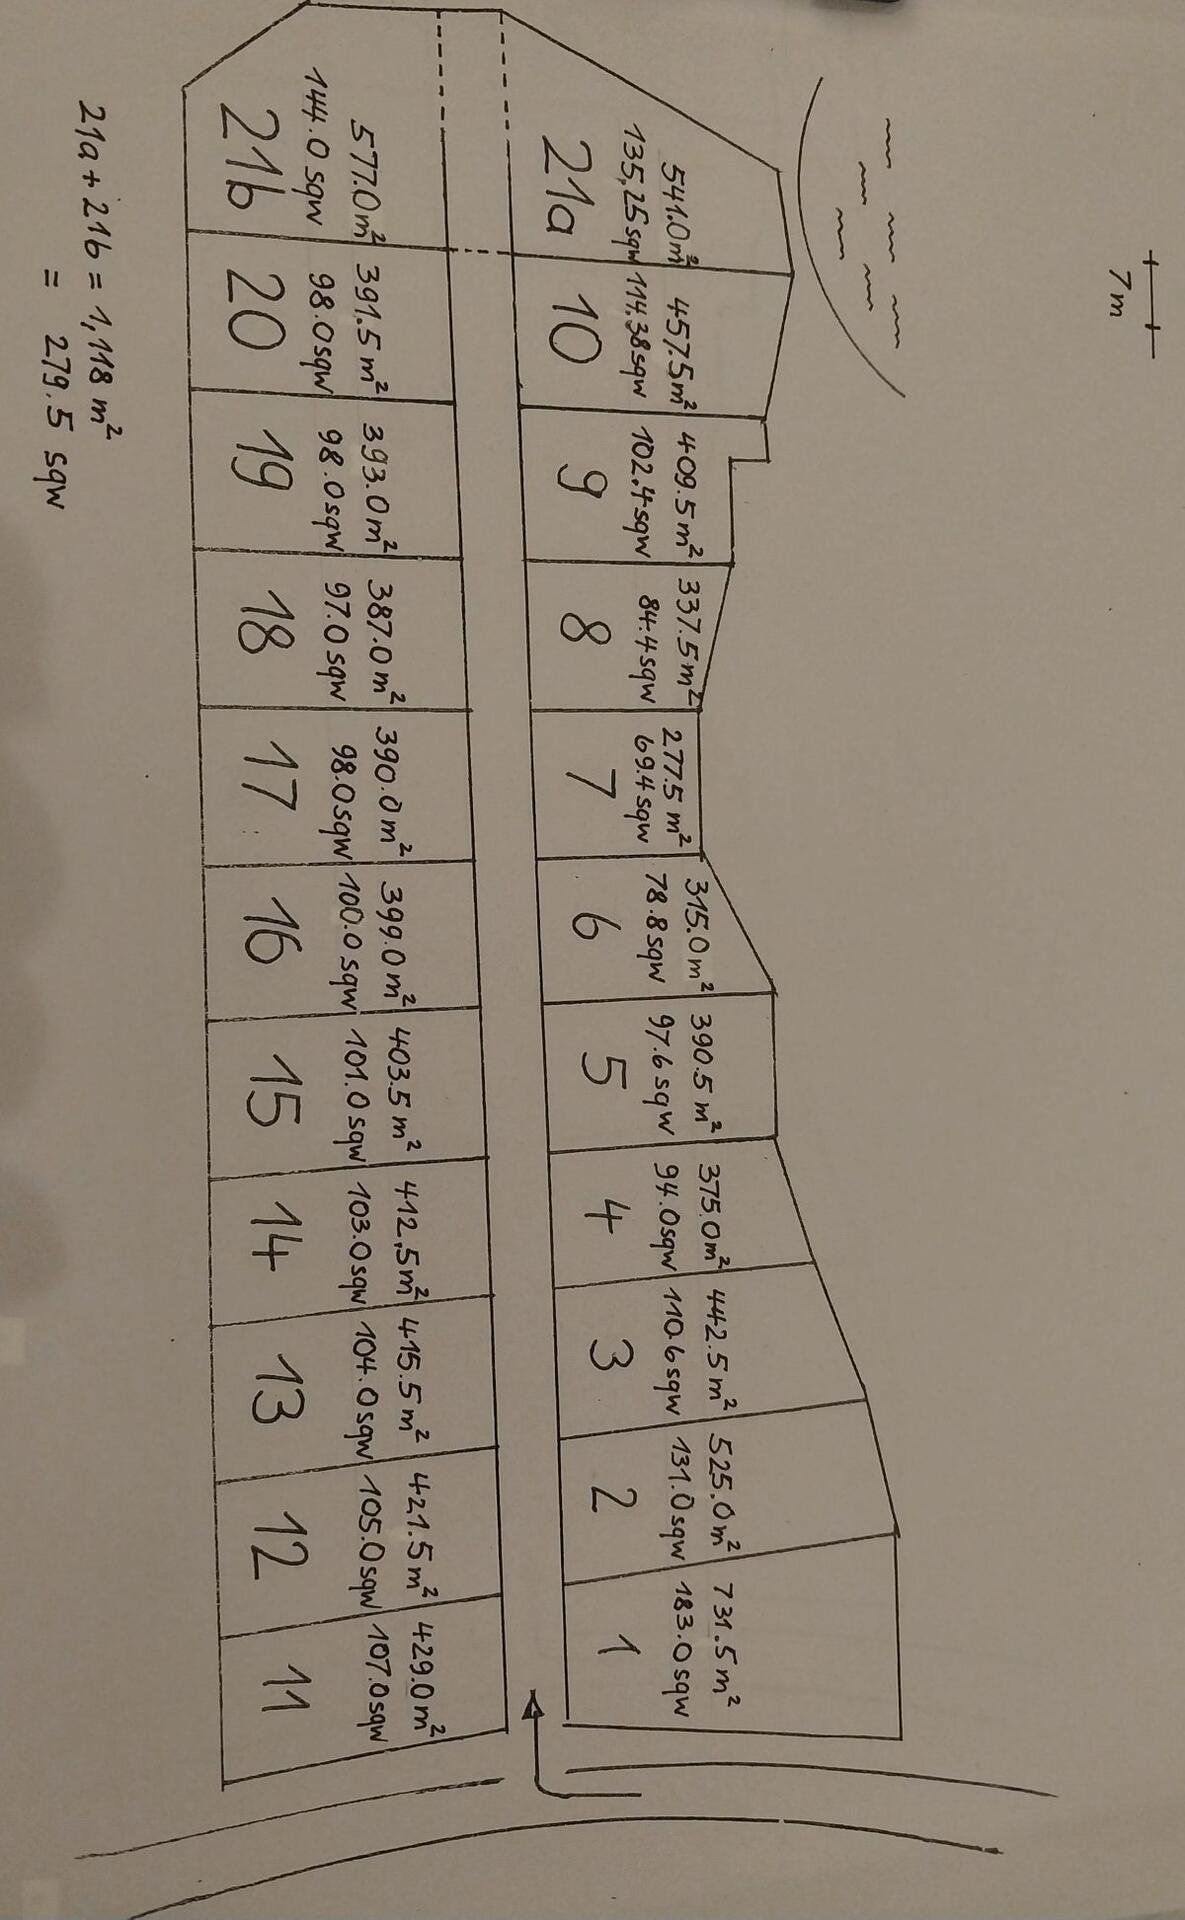 7m
541.0m²
135,25sqw
21a
457.5m²
114.38sqw
10
409.5m²
102.4sqw
9
337.5m²
84.4sqw
8
277.5m²
69.4sqw
7
315.0m²
78.8sqw
6
390.5m²
97.6sqw
5
375.0m²
94.0sqw
4
442.5m²
110.6sqw
3
525.0m²
131.0sqw
2
731.5m²
183.0sqw
1
577.0m²
144.0sqw
21b
391.5m²
98.0sqw
20
393.0m²
98.0sqw
19
387.0m²
97.0sqw
18
390.0m²
98.0sqw
17
399.0m²
100.0sqw
16
403.5m²
101.0sqw
15
412,5m²
103.0sqw
14
415.5m²
104.0sqw
13
421.5m²
105.0sqw
12
429.0m²
107.0sqw
11
21a + 21b = 1,118m²
= 279.5 sqw